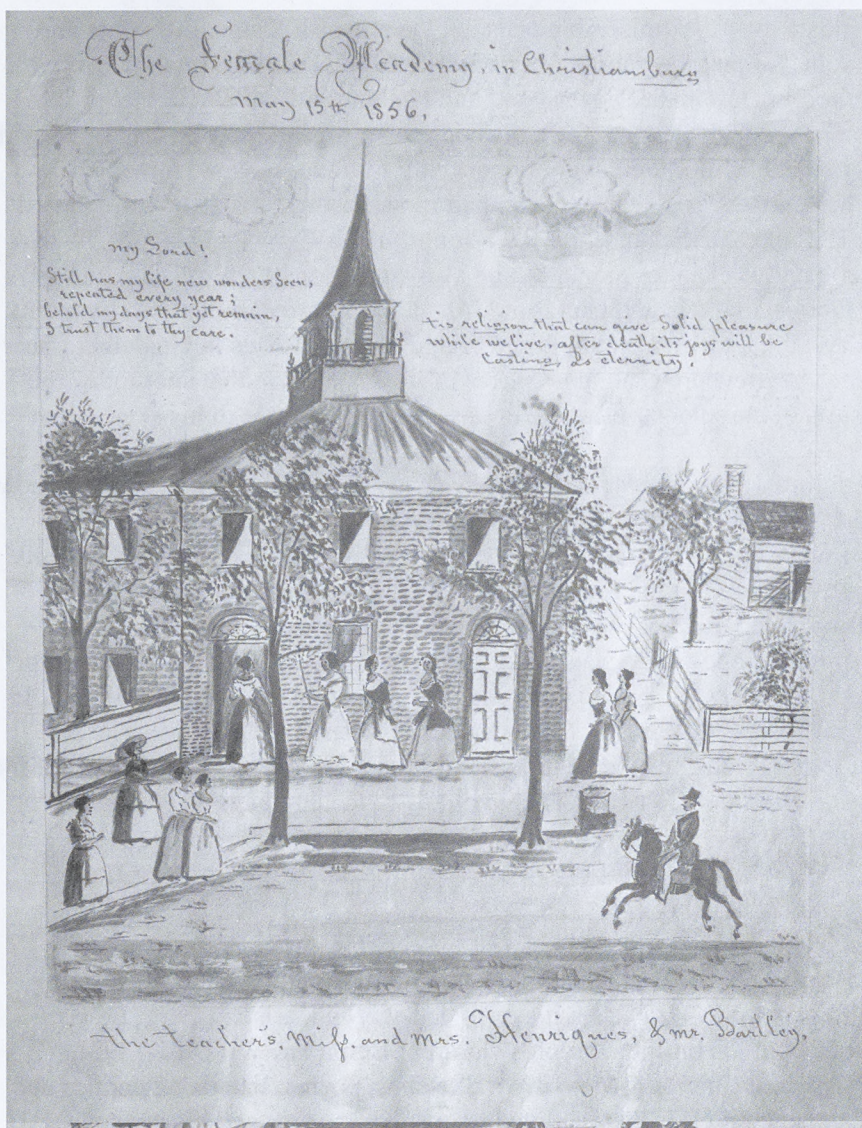 The Female Academy, in Christiansburg
May 15th 1856,
my Lord!
Still has my life new wonders Seen,
repeated every year;
behold my days that yet remain,
I trust them to thy care.
tis religion that can give Solid pleasure
while we live, after death its joys will be
Lasting, as eternity.
the teacher's, Miſs, and mrs. Henriques, & mr. Bartley,